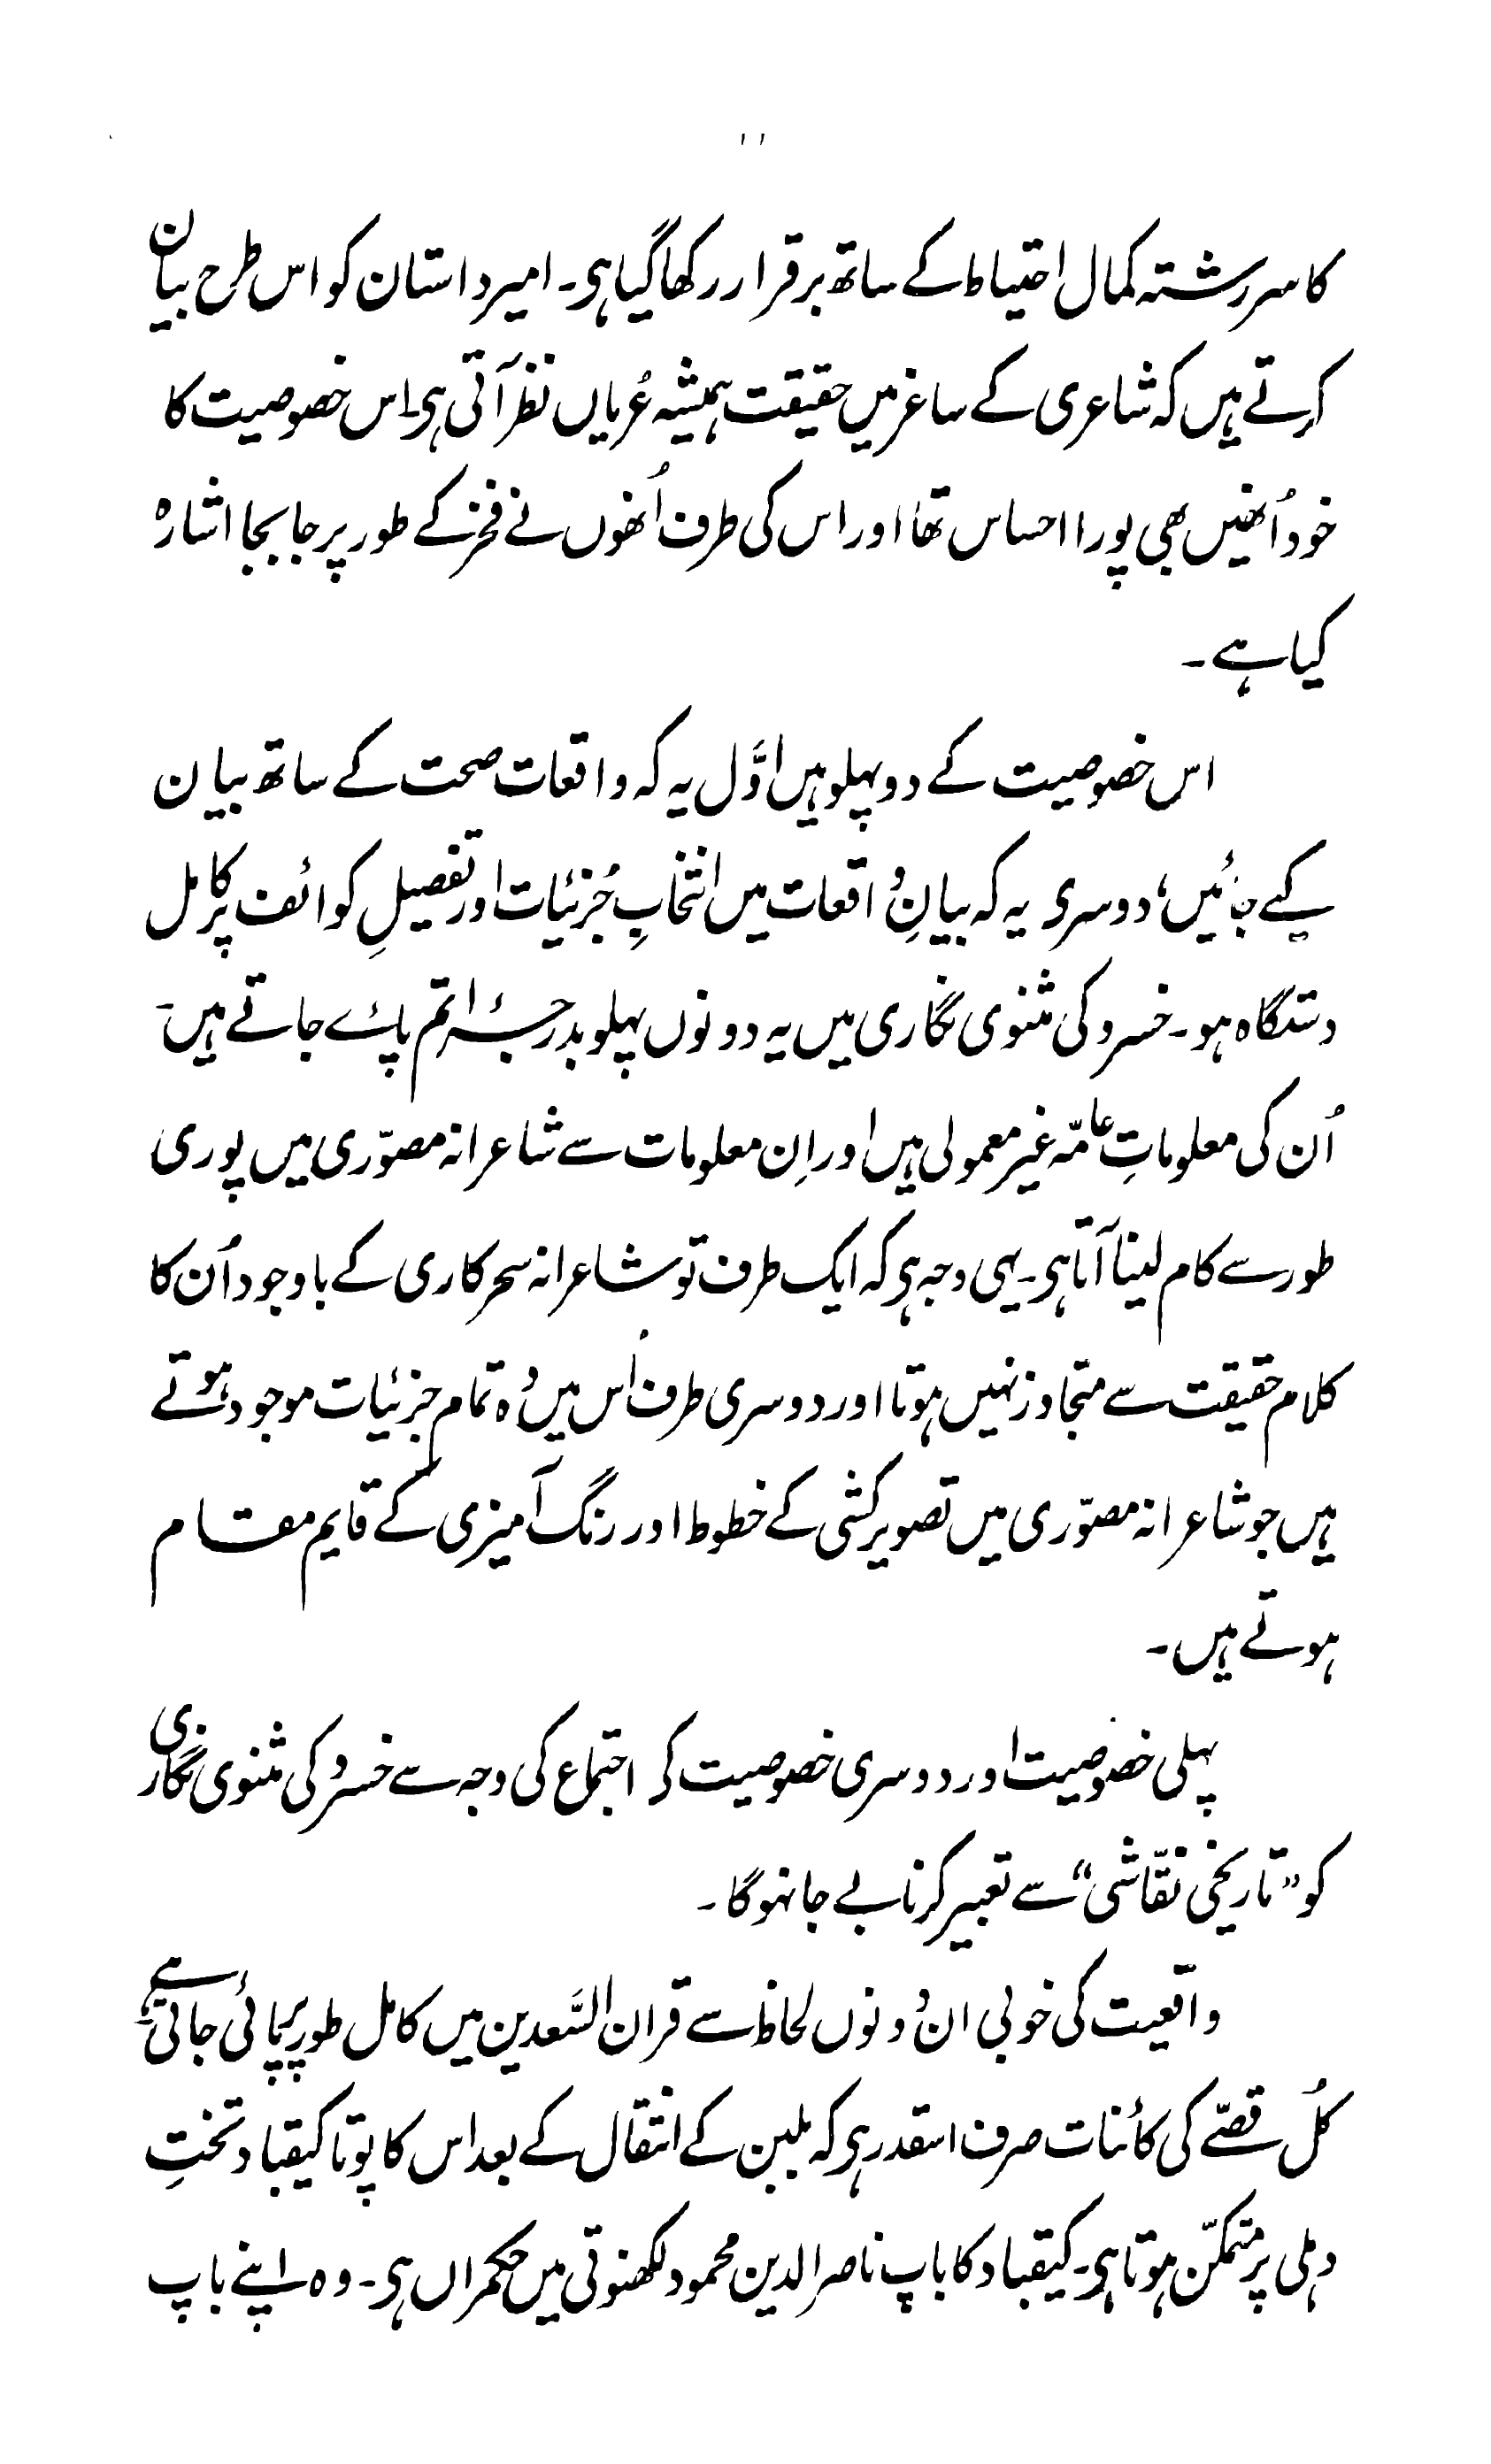 ۱۱
کا سررشتہ کمال احتیاط کے ساتھ برقرار رکھا گیا ہی۔ امیر داستان کو اس طرح بیان
کرتے ہیں کہ شاعری کے ساغر میں حقیقت ہمیشہ عُریاں نظر آتی ہی۔ اس خصوصیت کا
خود اُنھیں بھی پورا احساس تھا اور اس کی طرف اُنھوں نے فخر کے طور پر جابجا اشارہ
کیا ہے۔
اس خصوصیت کے دو پہلو ہیں اوَّل یہ کہ واقعات صحت کے ساتھ بیان
کیے جائیں؛ دوسری یہ کہ بیانِ واقعات میں انتخابِ جُزئیات اور تفصیلِ کوائف پر کامل
دستگاہ ہو۔ خسرو کی مثنوی نگاری میں یہ دونوں پہلو بدرجۂ اتم پائے جاتے ہیں۔
اُن کی معلوماتِ عامّہ غیر معمولی ہیں اور اِن معلومات سے شاعرانہ مصوّری میں پوری
طور سے کام لینا آتا ہی۔ یہی وجہ ہی کہ ایک طرف تو شاعرانہ سحر کاری کے باوجود اُن کا
کلام حقیقت سے متجاوز نہیں ہوتا اور دوسری طرف اُس میں وُہ تمام جزئیات موجود ہوتے
ہیں جو شاعرانہ مصوّری میں تصویر کشی کے خطوط اور رنگ آمیزی کے قایم مقام
ہوتے ہیں۔
پہلی خصوصیت اور دوسری خصوصیت کے اجتماع کی وجہ سے خسرو کی مثنوی نگاری
کو "تاریخی نقّاشی" سے تعبیر کرنا بے جا نہوگا۔
واقعیت کی خوبی ان دونوں لحاظ سے قران السَّعدین میں کامل طور پر پائی جاتی ہے
کُل قصّے کی کائنات صرف اسقدر ہی کہ بلبن کے انتقال کے بعد اس کا پوتا کیقباد تختِ
دہلی پر متمکّن ہوتا ہی۔ کیقباد کا باپ ناصر الدین محمود لکھنوتی میں حکمراں ہی۔ وہ اپنے باپ